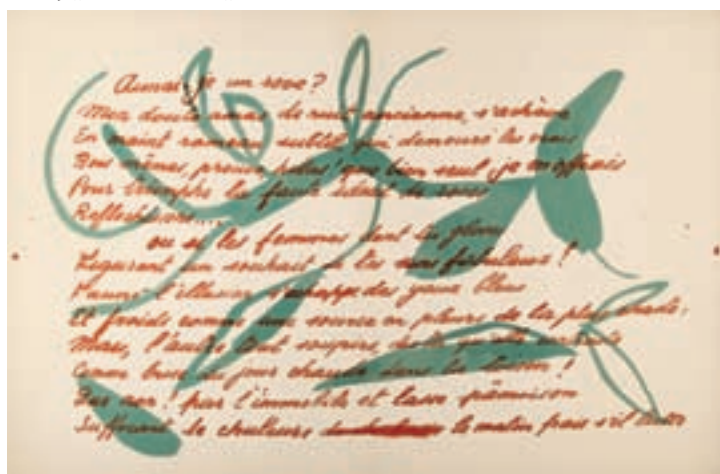 Aimai-je un rêve ?
Mon doute amas de nuit ancienne, s'achève
En maint rameau subtil qui demeuré les vrais
Bois mêmes, prouve hélas ! que bien seul je m'offrais
Pour triomphe la faute idéal de roses
Réfléchissons....
ou si les femmes dont tu gloses
Figurent un souhait de tes sens fabuleux !
Faune l'illusion s'échappe des yeux bleus
Et froids comme une source en pleurs de la plus chaste,
Mais, l'autre tout soupirs, contraste
Comme brise du jour chaude dans ta toison !
Que non ! par l'immobile et lasse pâmoison
Suffocant de chaleurs le matin frais s'il lutte